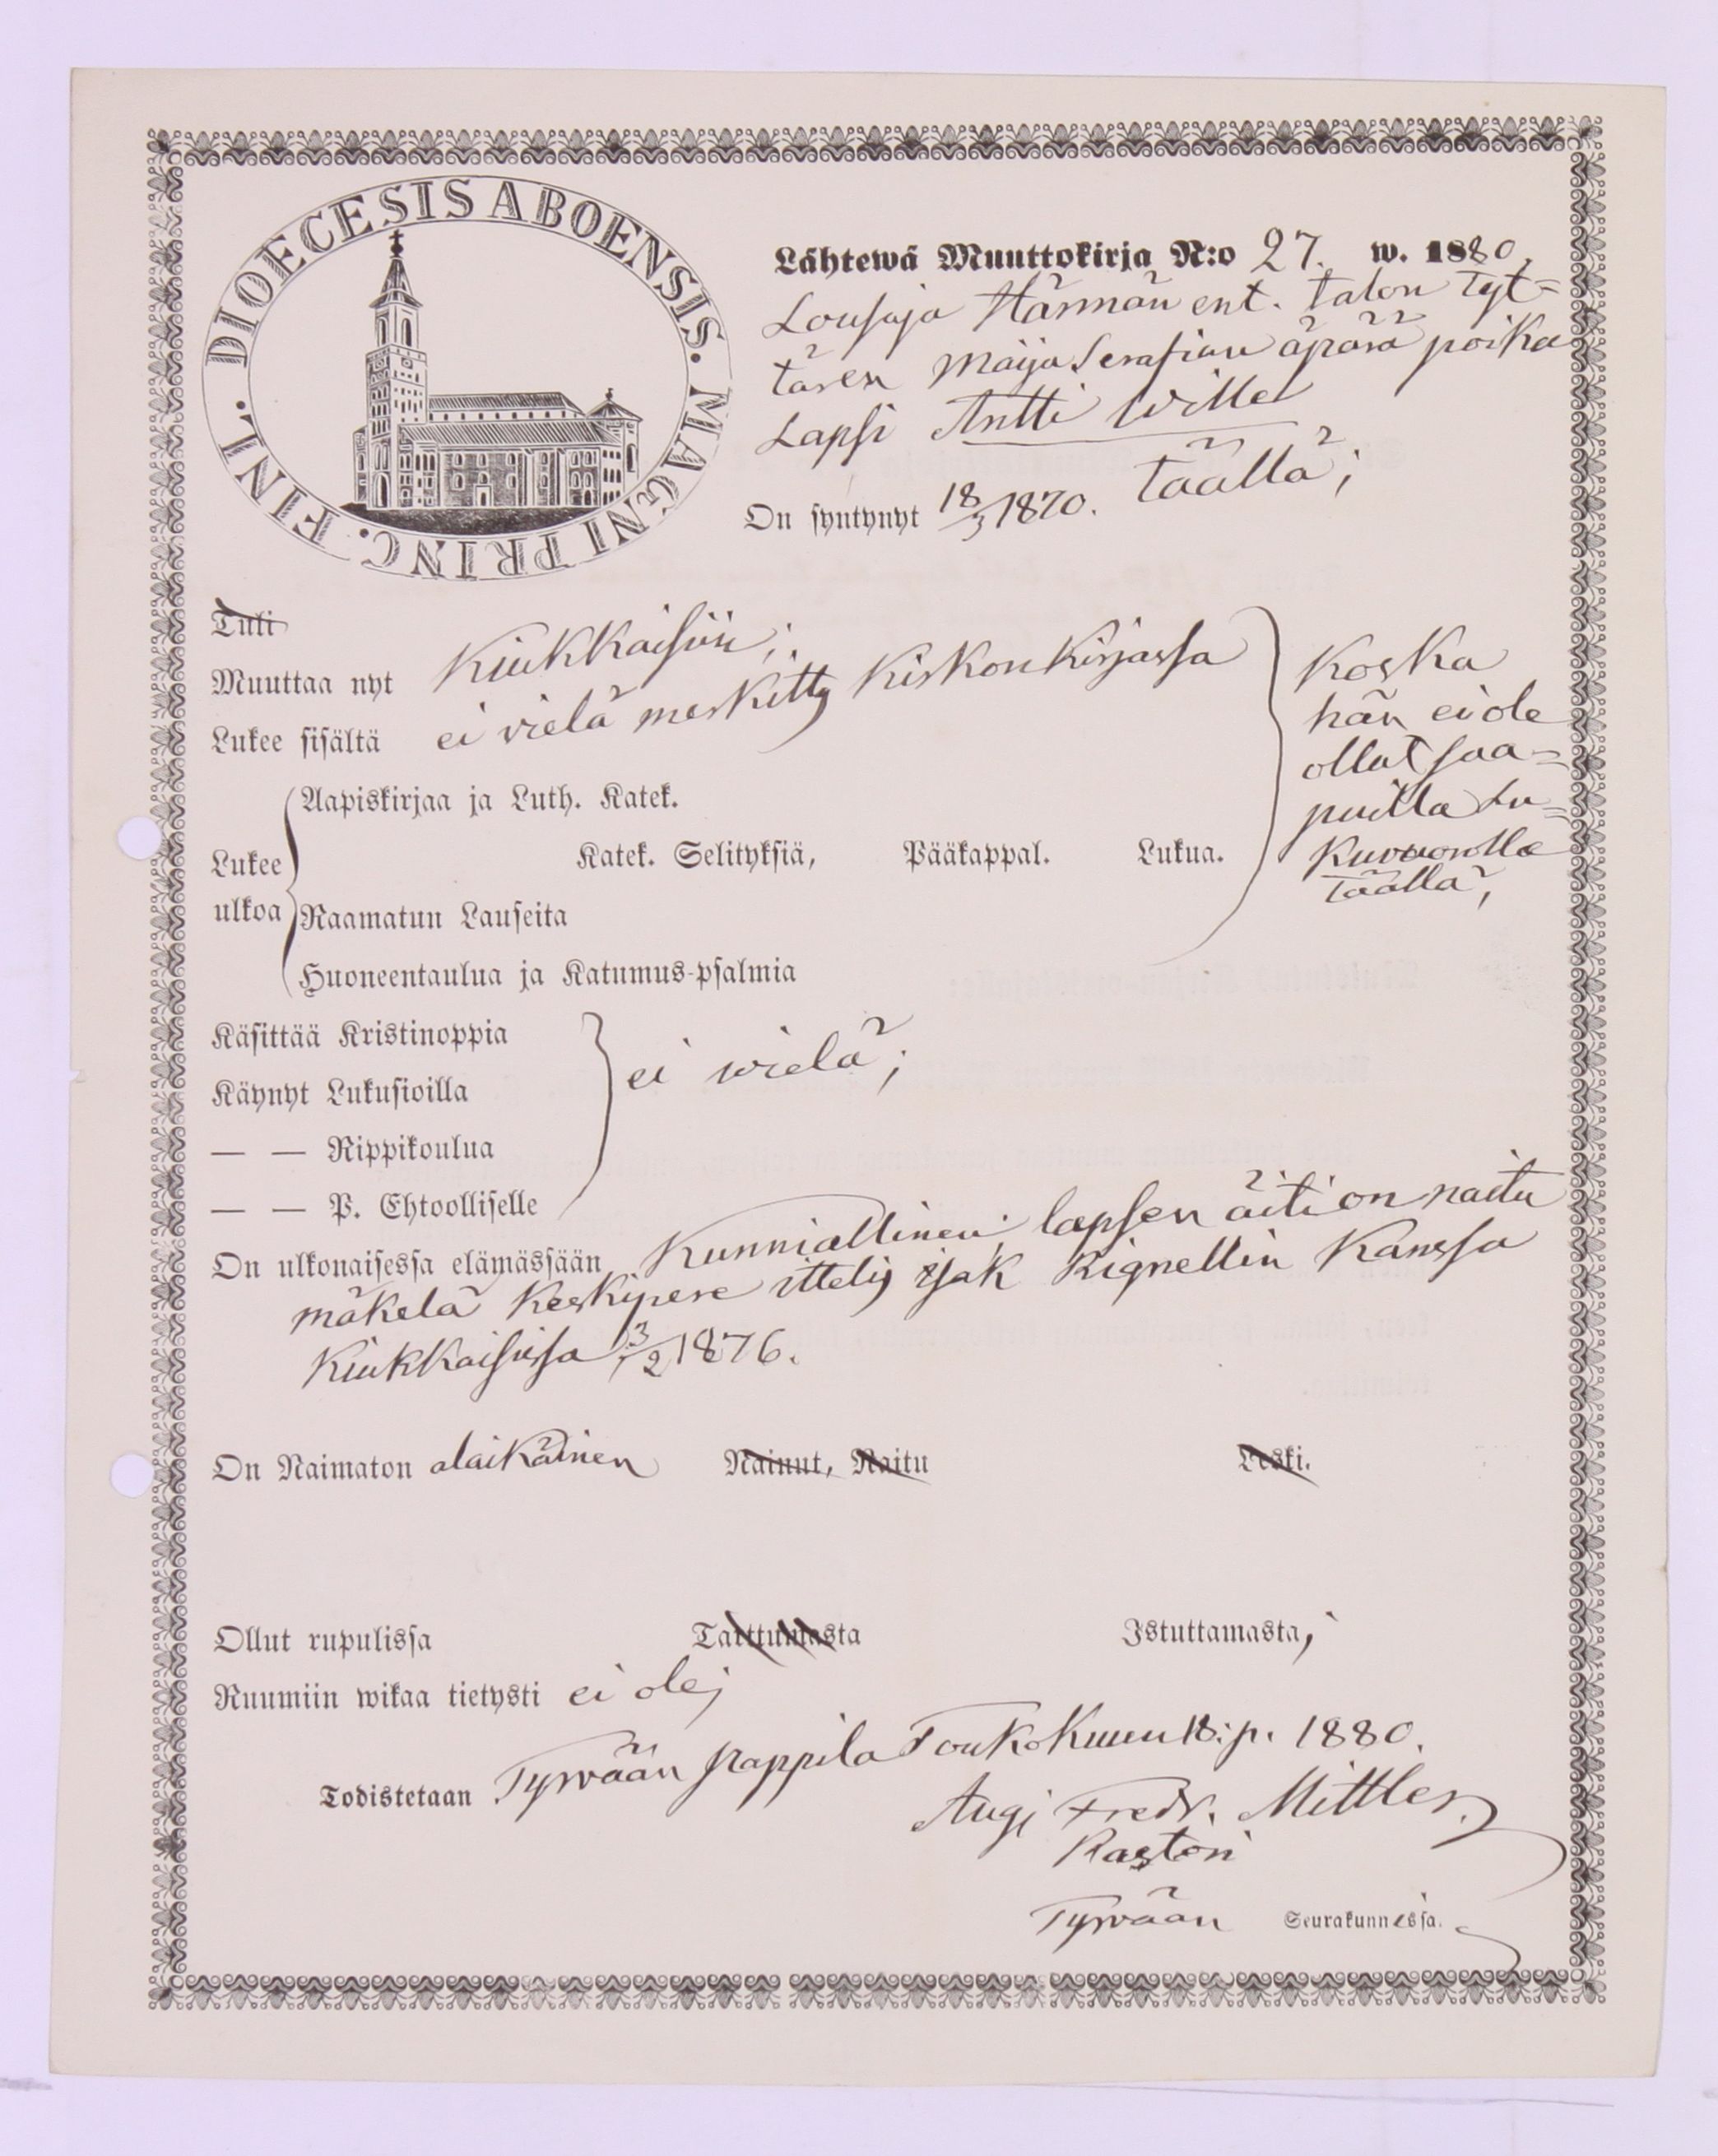 DIOECESIS ABOENSIS. MAGNI PRINC. FINL.
Lähtewä Muuttokirja N:o 27. w. 1880.
Lousaja Härmän ent. talon tyt=
tären Maija Serafian äpärä poika
Lapsi Antti Wille
On syntynyt 18/3 1870. täällä;
Tuli
Muuttaa nyt Kiukkaisiin;
Lukee sisältä ei vielä merkitty Kiskonkirjassa
Koska
hän ei ole
ollut saa=
puilla Lu=
kuvuorolla
täällä,
Aapiskirjaa ja Luth. Katek.
Lukee Katek. Selityksiä, Pääkappal. Lukua.
ulkoa Raamatun Lauseita
Huoneentaulua ja Katumus-psalmia
Käsittää Kristinoppia
Käynyt Lukusioilla ei wielä;
— — Rippikoulua
— — P. Ehtoolliselle
On ulkonaisessa elämässään Kunniallinen; lapsen äiti on naitu
Mäkelä Keskipere ittelis Isak Rignellin Kanssa
Kiukkaisissa 3/2 1876.
On Naimaton alaikäinen Nainut, Naitu Leski.
Ollut rupulissa Tarttumasta Istuttamasta;
Ruumiin wikaa tietysti ei ole;
Todistetaan Tyrvään Pappila Toukokuun 18. p. 1880.
Aug. Fredr. Mittler.
Rastori
Tyrvään Seurakunnassa.